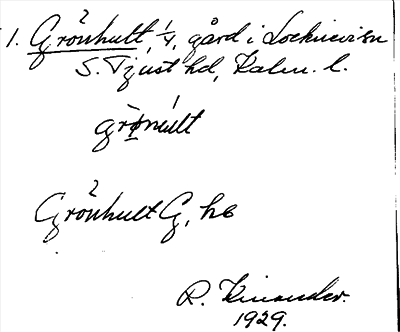 1. Grönhult, 1/4, gård i Locknevi sn
S. Tjust hd, Kalm. l.
grö̀núlt
2
Grönhult G, hb
R. Kinander.
1929.